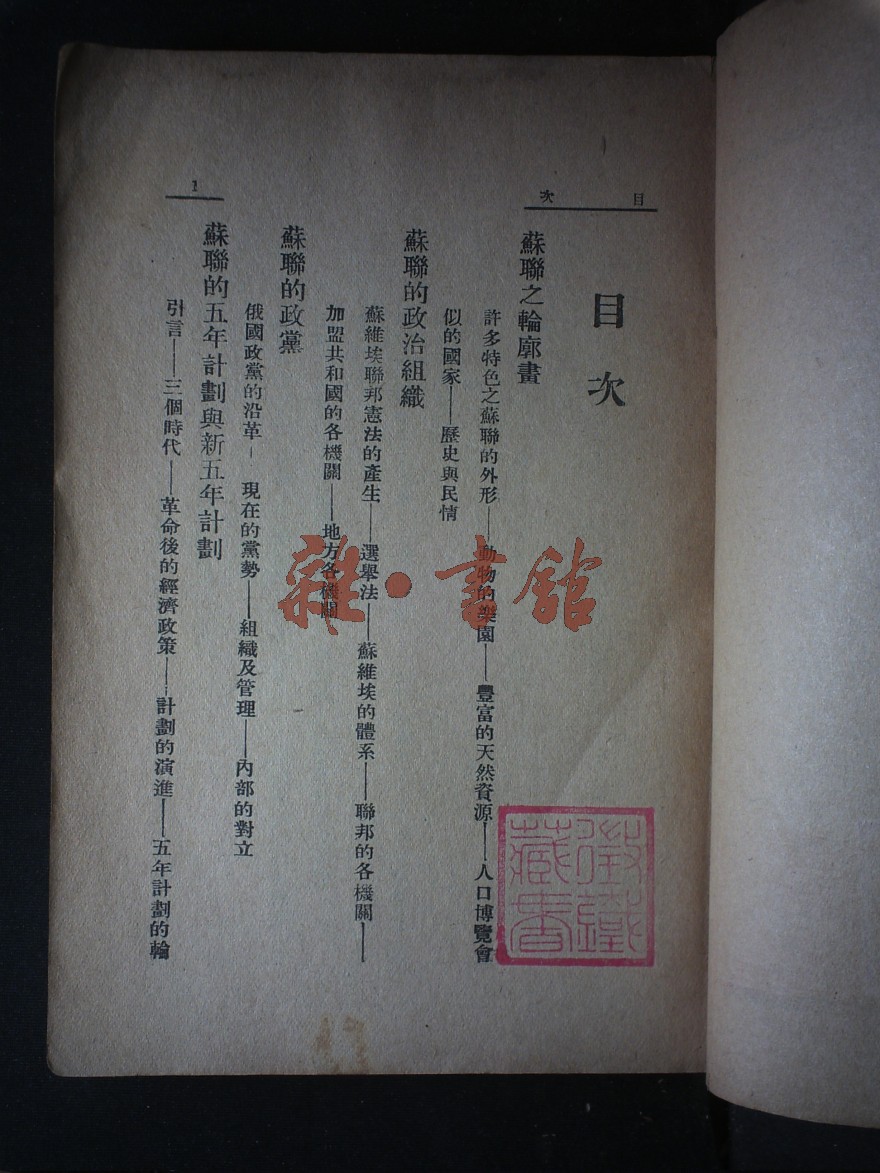 目次
目次
蘇聯之輪廓畫
許多特色之蘇聯的外形——動物的樂園——豐富的天然資源——人口博覽會
似的國家——歷史與民情
蘇聯的政治組織
蘇維埃聯邦憲法的產生——選舉法——蘇維埃的體系——聯邦的各機關——
加盟共和國的各機關——地方各機關
蘇聯的政黨
俄國政黨的沿革–現在的黨勢——組織及管理——內部的對立
蘇聯的五年計劃與新五年計劃
引言——三個時代——革命後的經濟政策——計劃的演進——五年計劃的輪
1
雜·書館
藏書